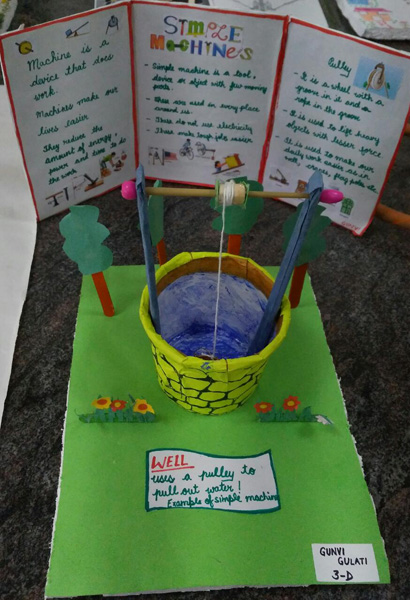 Machine is a
device that does
work.
Machines make our
lives easier
They reduce the
amount of energy,
power and time to do
the work
SIMPLE
MACHINES
- Simple machine is a tool,
device or object with few moving
parts
- These are used in every place
around us.
- These do not use electricity
- These make tough jobs easier.
Pulley
- It is a wheel with a
groove in it and a
rope in the groove
- It is used to lift heavy
objects with lesser force
- It is used to make our
daily work easier as in
well, flag poles etc.
WELL
uses a pulley to
pull out water!
Example of simple machine
GUNVI
GULATI
3-D